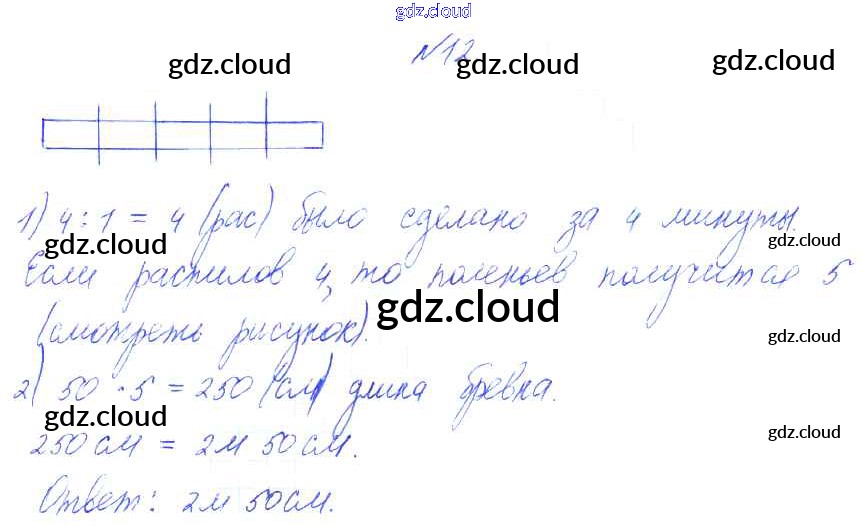 gdz.cloud
№12
gdz.cloud gdz.cloud gdz.cloud
1) 4:1 = 4 (рас) было сделано за 4 минуты.
gdz.cloud gdz.cloud
Если распилов 4, то поленьев получится 5
gdz.cloud
(смотреть рисунок).
gdz.cloud
2) 50 · 5 = 250 (см) длина бревна.
gdz.cloud gdz.cloud
250 см = 2м 50 см.
Ответ: 2м 50см.